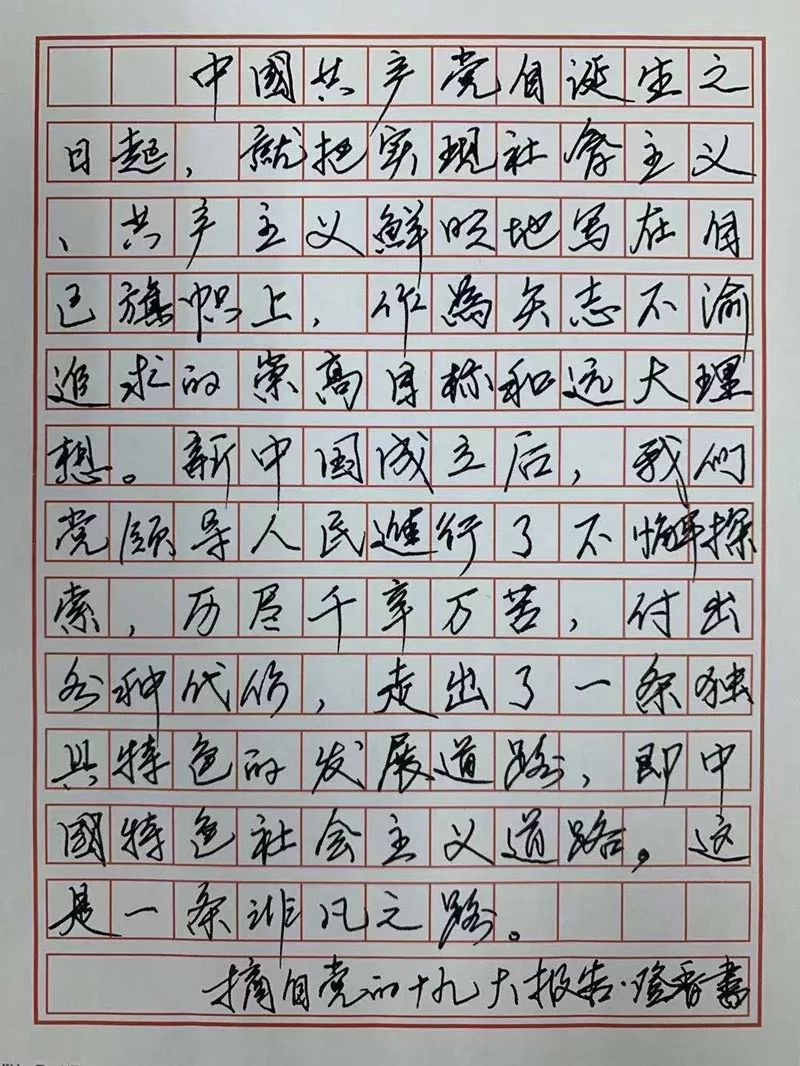 中國共产党自诞生之
日起，就把实現社會主义
、共产主义鮮明地写在自
己旗帜上，作為矢志不渝
追求的崇高目标和远大理
想。新中国成立后，我们
党领导人民進行了不懈探
索，历尽千辛万苦，付出
各种代价，走出了一条独
具特色的发展道路，即中
國特色社会主义道路。这
是一条非凡之路。
摘自党的十九大报告·